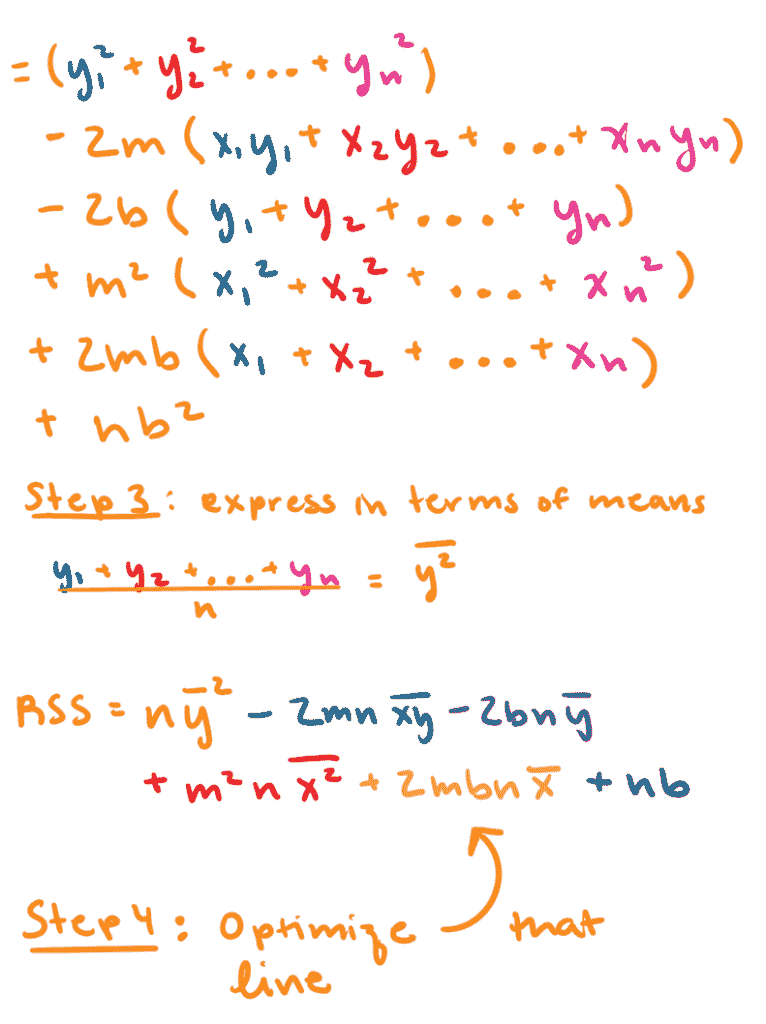 = (y₁² + y₂² + ... + yₙ²)
- 2m (x₁y₁ + x₂y₂ + ... + xₙyₙ)
- 2b (y₁ + y₂ + ... + yₙ)
+ m² (x₁² + x₂² + ... + xₙ²)
+ 2mb (x₁ + x₂ + ... + xₙ)
+ nb²
Step 3: express in terms of means
y₁ + y₂ + ... + yₙ / n = \overline{y²}
RSS = n\overline{y}² - 2mn \overline{xy} - 2bn \overline{y}
+ m²n \overline{x²} + 2mbn \overline{x} + nb
Step 4: Optimize that
line